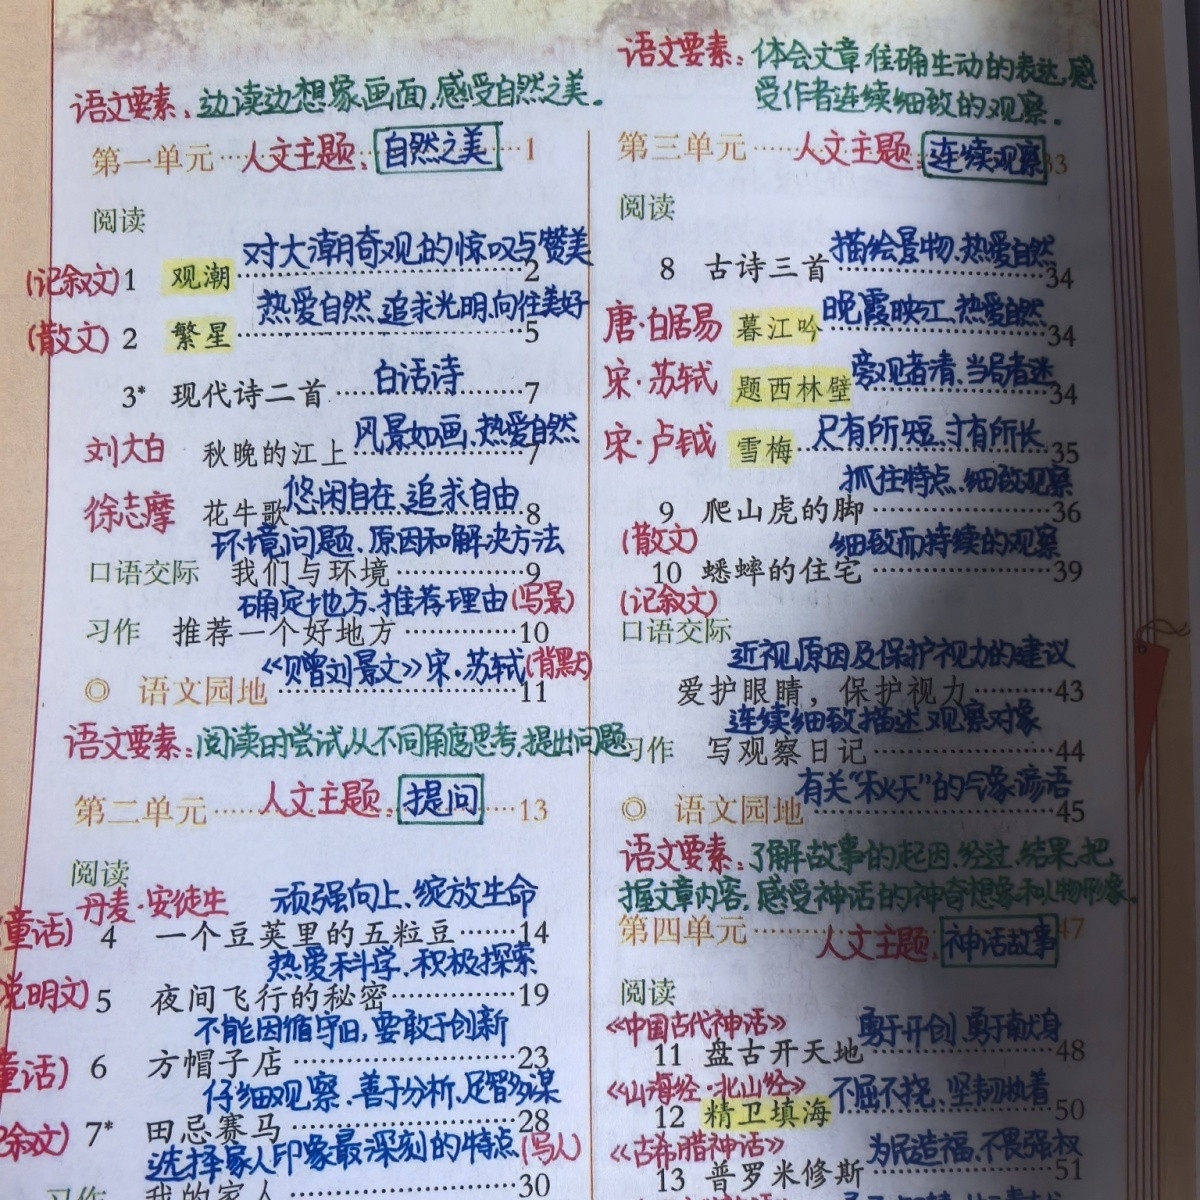 语文要素：边读边想象画面，感受自然之美。
第一单元 人文主题：自然之美 1
阅读
对大潮奇观的惊叹与赞美
(记叙文) 1 观潮 2
热爱自然、追求光明、向往美好
(散文) 2 繁星 5
白话诗
3* 现代诗二首 7
风景如画、热爱自然
刘大白 秋晚的江上 7
悠闲自在、追求自由
徐志摩 花牛歌 8
环境问题、原因和解决方法
口语交际 我们与环境 9
确定地方、推荐理由(写景)
习作 推荐一个好地方 10
《赠刘景文》宋·苏轼(背默)
◎ 语文园地 11
语文要素：阅读时尝试从不同角度思考，提出问题
第二单元 人文主题：提问 13
阅读
丹麦·安徒生 顽强向上、绽放生命
童话) 4 一个豆荚里的五粒豆 14
热爱科学、积极探索
说明文) 5 夜间飞行的秘密 19
不能因循守旧，要敢于创新
童话) 6 方帽子店 23
仔细观察、善于分析、足智多谋
记叙文) 7* 田忌赛马 28
选择家人印象最深刻的特点(写人)
习作 我的家人 30
语文要素：体会文章准确生动的表达，感
受作者连续细致的观察。
第三单元 人文主题：连续观察 33
阅读
描绘景物、热爱自然
8 古诗三首 34
晚霞映江、热爱自然
唐·白居易 暮江吟 34
旁观者清、当局者迷
宋·苏轼 题西林壁 34
尺有所短、寸有所长
宋·卢钺 雪梅 35
抓住特点、细致观察
9 爬山虎的脚 36
(散文) 细致而持续的观察
10 蟋蟀的住宅 39
(记叙文)
口语交际
近视原因及保护视力的建议
爱护眼睛，保护视力 43
连续细致描述观察对象
习作 写观察日记 44
有关“秋天”的气象谚语
◎ 语文园地 45
语文要素：了解故事的起因、经过、结果，把
握文章内容，感受神话的神奇想象和人物形象。
第四单元 人文主题：神话故事 47
阅读
《中国古代神话》 勇于开创、勇于献身
11 盘古开天地 48
《山海经·北山经》 不屈不挠、坚韧执着
12 精卫填海 50
《古希腊神话》 为民造福、不畏强权
13 普罗米修斯 51